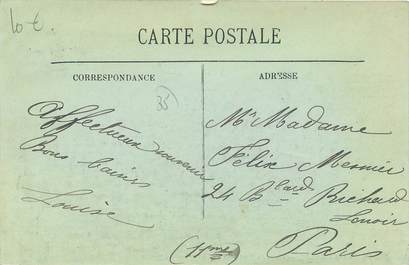 10 €
CARTE POSTALE
CORRESPONDANCE
ADRESSE
35
Affectueux souvenir
Bons baisers
Louise
Mr Madame
Félix Mesnier
24 Blard Richard
Lenoir
(11me)
Paris